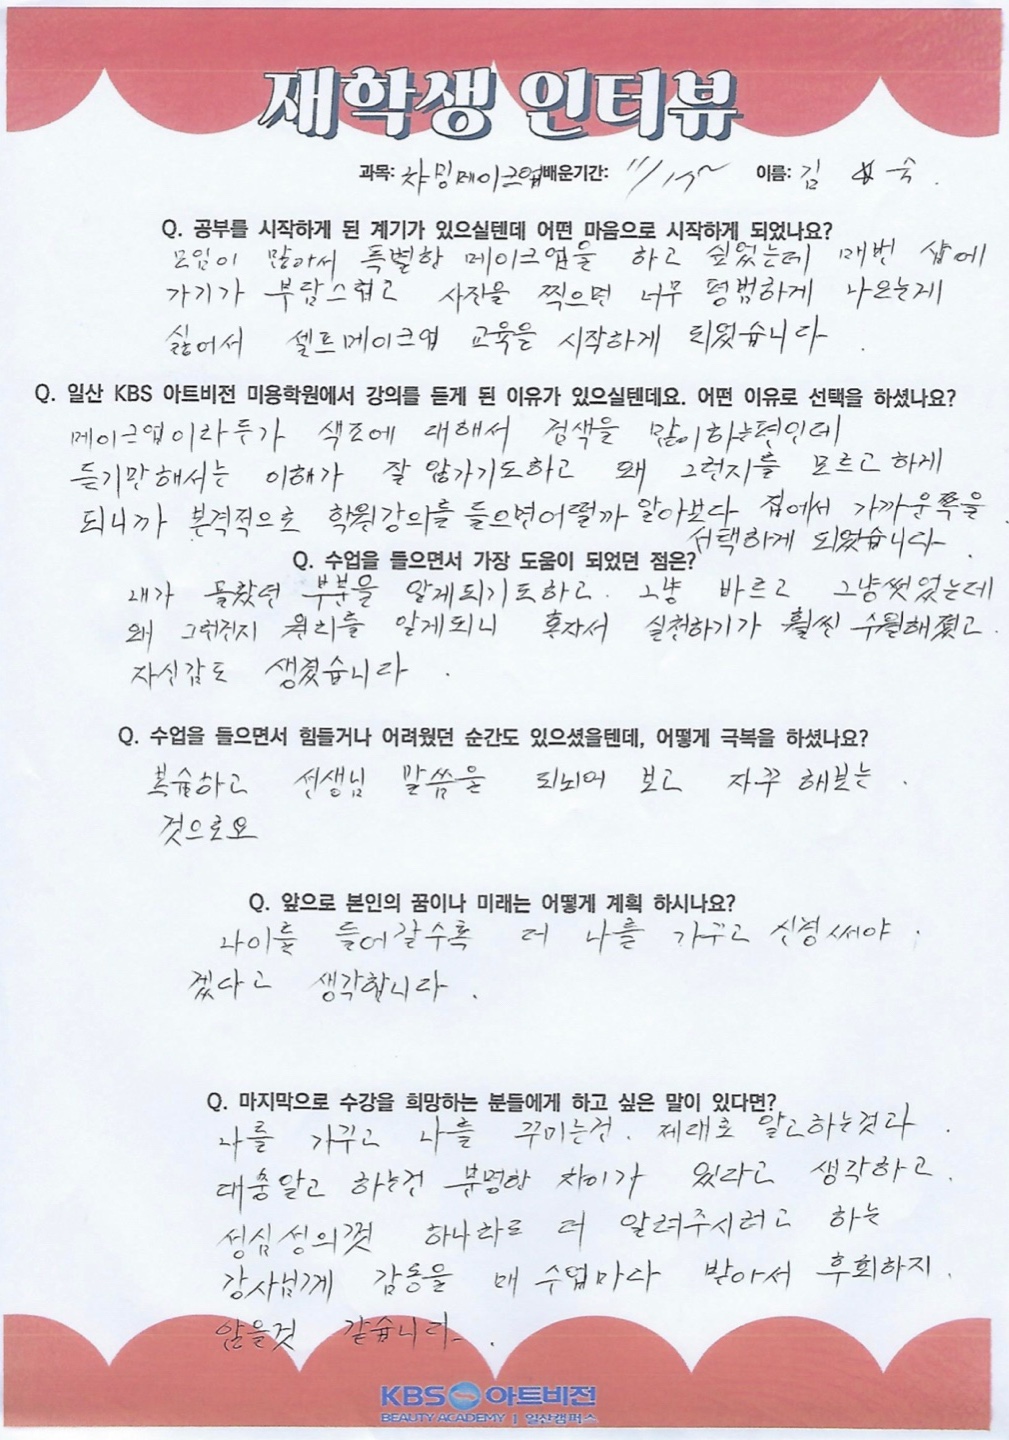 재학생 인터뷰
과목: 차밍메이크업 배운기간: 11/15~ 이름: 김 숙.
Q. 공부를 시작하게 된 계기가 있으실텐데 어떤 마음으로 시작하게 되었나요?
모임이 많아서 특별한 메이크업을 하고 싶었는데 매번 샵에
가기가 부담스럽고 사진을 찍으면 너무 평범하게 나오는게
싫어서 셀프메이크업 교육을 시작하게 되었습니다.
Q. 일산 KBS 아트비전 미용학원에서 강의를 듣게 된 이유가 있으실텐데요. 어떤 이유로 선택을 하셨나요?
메이크업이라든가 색조에 대해서 검색을 많이하는편인데
듣기만해서는 이해가 잘 안가기도하고 왜 그런지를 모르고 하게
되니까 본격적으로 학원강의를 들으면어떨까 알아보다 집에서 가까운쪽을
선택하게 되었습니다.
Q. 수업을 들으면서 가장 도움이 되었던 점은?
내가 몰랐던 부분을 알게되기도하고. 그냥 바르고 그냥썻었는데
왜 그런건지 원리를 알게되니 혼자서 실천하기가 훨씬 수월해졌고.
자신감도 생겼습니다.
Q. 수업을 들으면서 힘들거나 어려웠던 순간도 있으셨을텐데, 어떻게 극복을 하셨나요?
복습하고 선생님 말씀을 되뇌어 보고 자꾸 해보는.
것으로요
Q. 앞으로 본인의 꿈이나 미래는 어떻게 계획 하시나요?
나이들 들어갈수록 더 나를 가꾸고 신경써야.
겠다고 생각합니다.
Q. 마지막으로 수강을 희망하는 분들에게 하고 싶은 말이 있다면?
나를 가꾸고 나를 꾸미는건. 제대로 알고하는것과.
대충알고 하는건 분명한 차이가 있다고 생각하고.
성심성의껏 하나라도 더 알려주시려고 하는
강사님께 감동을 매 수업마다 받아서 후회하지.
않을것 같습니다.
KBS 아트비전
BEAUTY ACADEMY | 일산캠퍼스